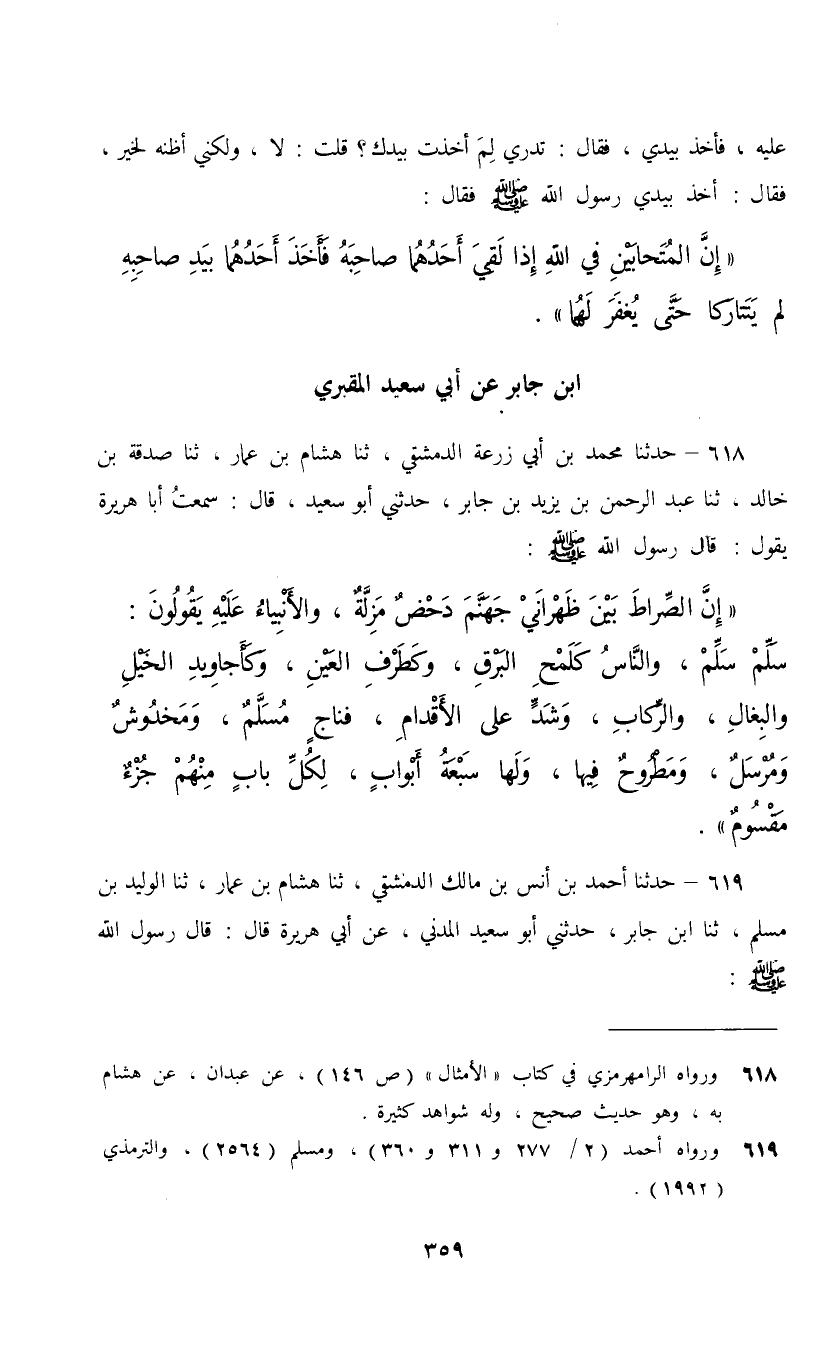 عليه ، فأخذ بيدي ، فقال : تدري لِمَ أخذت بيدك؟ قلت : لا ، ولكني أظنه لخير ،
فقال : أخذ بيدي رسول الله ﷺ فقال :
« إِنَّ المُتَحابَيْنِ في اللهِ إِذا لَقِيَ أَحَدُهُما صاحِبَهُ فَأَخَذَ أَحَدُهُما بيَدِ صاحِبِهِ
لم يَتَتارَكا حَتَّى يُغفَرَ لَهُما» .
ابن جابر عن أبي سعيد المقبري
٦١٨ – حدثنا محمد بن أبي زرعة الدمشقي ، ثنا هشام بن عمار ، ثنا صدقة بن
خالد ، ثنا عبد الرحمن بن يزيد بن جابر ، حدثني أبو سعيد ، قال : سمعتُ أبا هريرة
يقول : قال رسول الله ﷺ :
« إِنَّ الصِّراطَ بَيْنَ ظَهْرانَيْ جَهَنَّمَ دَحْضٌ مَزِلَّةٌ ، والأَنْبِياءُ عَلَيْهِ يَقُولُونَ :
سَلِّمْ سَلِّمْ ، والنَّاسُ كَلَمْحِ البَرْقِ ، وكَطَرْفِ العَيْنِ ، وكَأَجاوِيدِ الخَيْلِ
والبِغالِ ، والرِّكابِ ، وَشَدٍّ على الأَقْدامِ ، فناجٍ مُسَلَّمٌ ، وَمَخدُوشٌ
وَمُرْسَلٌ ، وَمَطْرُوحٌ فِيها ، وَلَها سَبْعَةُ أَبْوابٍ ، لِكُلِّ بابٍ مِنْهُمْ جُزْءٌ
مَقْسُومٌ» .
٦١٩ – حدثنا أحمد بن أنس بن مالك الدمشقي ، ثنا هشام بن عمار ، ثنا الوليد بن
مسلم ، ثنا ابن جابر ، حدثني أبو سعيد المدني ، عن أبي هريرة قال : قال رسول الله
ﷺ :
٦١٨ ورواه الرامهرمزي في كتاب «الأمثال» (ص ١٤٦) ، عن عبدان ، عن هشام
به ، وهو حديث صحيح ، وله شواهد كثيرة .
٦١٩ ورواه أحمد (٢ / ٢٧٧ و ٣١١ و ٣٦٠) ، ومسلم (٢٥٦٤) ، والترمذي
(١٩٩٢) .
٣٥٩